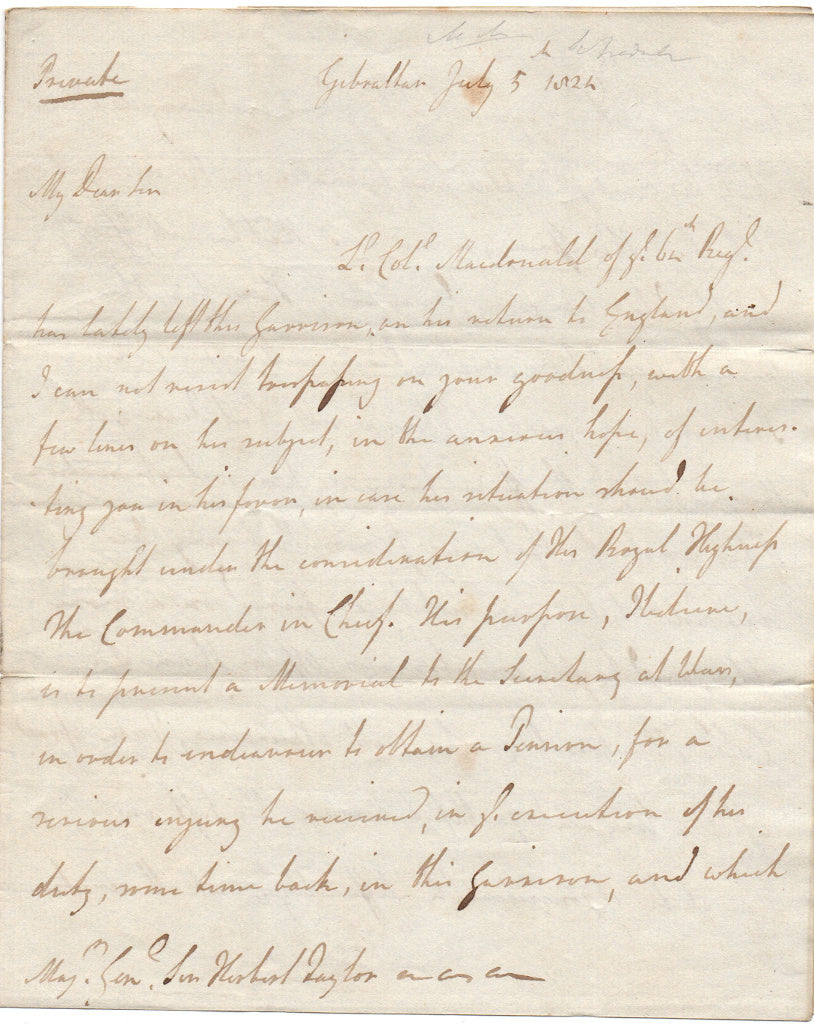 Private
Gibraltar July 5th 1824
My Dear Sir
Lt. Coll. Macdonald of ye. 64th Regt.
has lately left this Garrison, on his return to England, and
I can not resist trespassing on your goodness, with a
few lines on his subject, in the anxious hope, of interes-
ting you in his favor, in case his situation should be
brought under the consideration of His Royal Highness
The Commander in Chief. His purpose, I believe,
is to present a Memorial to the Secretary at War,
in order to endeavour to obtain a Pension, for a
serious injury he received, in ye. execution of his
duty, some time back, in this Garrison, and which
Majr. Genl. Sir Herbert Taylor